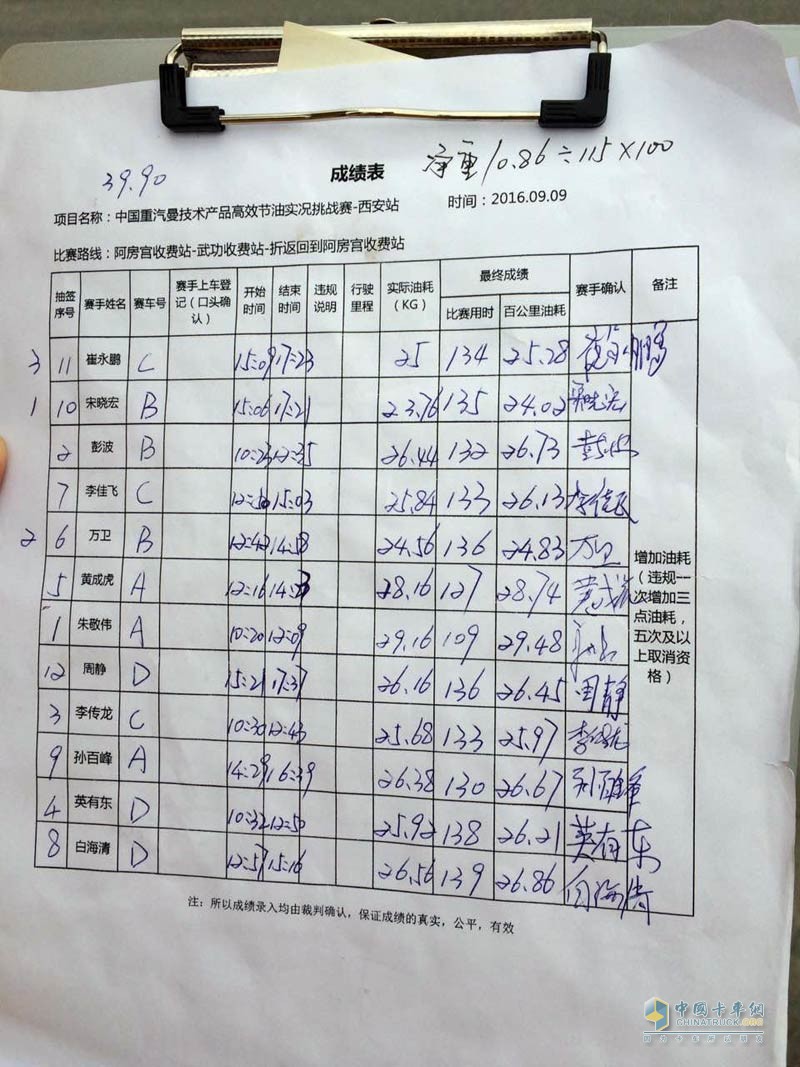 39.90
成绩表
净重/0.86÷115×100
项目名称：中国重汽曼技术产品高效节油实况挑战赛-西安站
时间：2016.09.09
比赛路线：阿房宫收费站-武功收费站-折返回到阿房宫收费站
抽签序号 赛手姓名 赛车号 赛手上车登记（口头确认） 开始时间 结束时间 违规说明 行驶里程 实际油耗（KG） 最终成绩 比赛用时 百公里油耗 赛手确认 备注
3 11 崔永鹏 C 15:09 17:23 25 134 25.28 崔永鹏
1 10 宋晓宏 B 15:06 17:21 23.76 135 24.02 宋晓宏
2 彭波 B 10:23 12:35 26.44 132 26.73 彭波
7 李佳飞 C 12:50 15:03 25.84 133 26.13 李佳飞
2 6 万卫 B 12:42 14:58 24.56 136 24.83 万卫
5 黄成虎 A 12:16 14:23 28.16 127 28.74 黄成虎
1 朱敬伟 A 10:20 12:09 29.16 109 29.48
12 周静 D 15:21 17:37 26.16 136 26.45 周静
3 李传龙 C 10:30 12:43 25.68 133 25.97 李传龙
9 孙百峰 A 14:29 16:39 26.38 130 26.67
4 英有东 D 10:32 12:50 25.92 138 26.21 英有东
8 白海清 D 12:57 15:16 26.56 139 26.86 白海清
增加油耗（违规一次增加三点油耗，五次及以上取消资格）
注：所以成绩录入均由裁判确认，保证成绩的真实，公平，有效
中国卡车网
CHINATRUCK.ORG